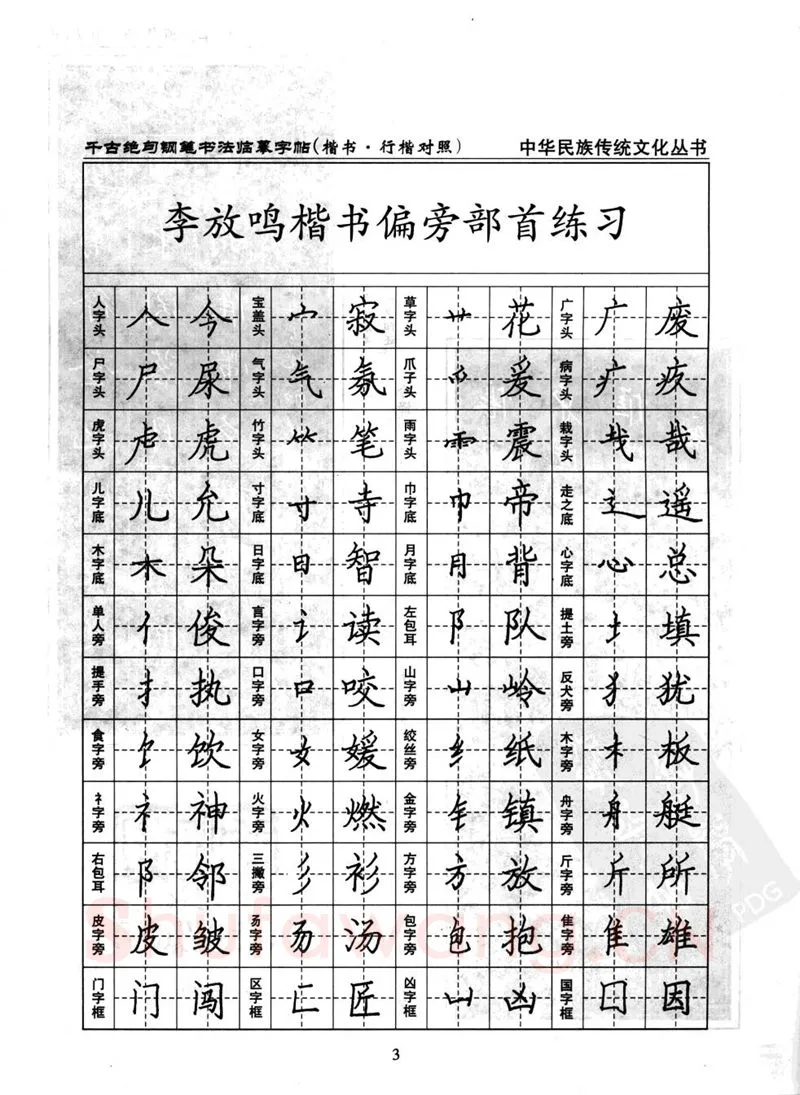 千古绝句钢笔书法临摹字帖(楷书·行楷对照) 中华民族传统文化丛书
李放鸣楷书偏旁部首练习
人字头 人 今 宝盖头 宀 寂 草字头 艹 花 广字头 广 废
尸字头 尸 尿 气字头 气 氛 爪子头 爫 爱 病字头 疒 疫
虎字头 虍 虎 竹字头 ⺮ 笔 雨字头 雨 震 栽字头 𢦏 哉
儿字底 儿 允 寸字底 寸 寺 巾字底 巾 帝 走之底 辶 遥
木字底 木 朵 日字底 日 智 月字底 月 背 心字底 心 总
单人旁 亻 俊 言字旁 讠 读 左包耳 阝 队 提土旁 土 填
提手旁 扌 执 口字旁 口 咬 山字旁 山 岭 反犬旁 犭 犹
食字旁 饣 饮 女字旁 女 媛 绞丝旁 纟 纸 木字旁 木 板
礻字旁 礻 神 火字旁 火 燃 金字旁 钅 镇 舟字旁 舟 艇
右包耳 阝 邻 三撇旁 彡 衫 方字旁 方 放 斤字旁 斤 所
皮字旁 皮 皱 汤字旁 汤 包字旁 包 抱 隹字旁 隹 雄
门字框 门 闯 区字框 匚 匠 凶字框 凵 凶 国字框 囗 因
3
Shufawang.CN
PDG